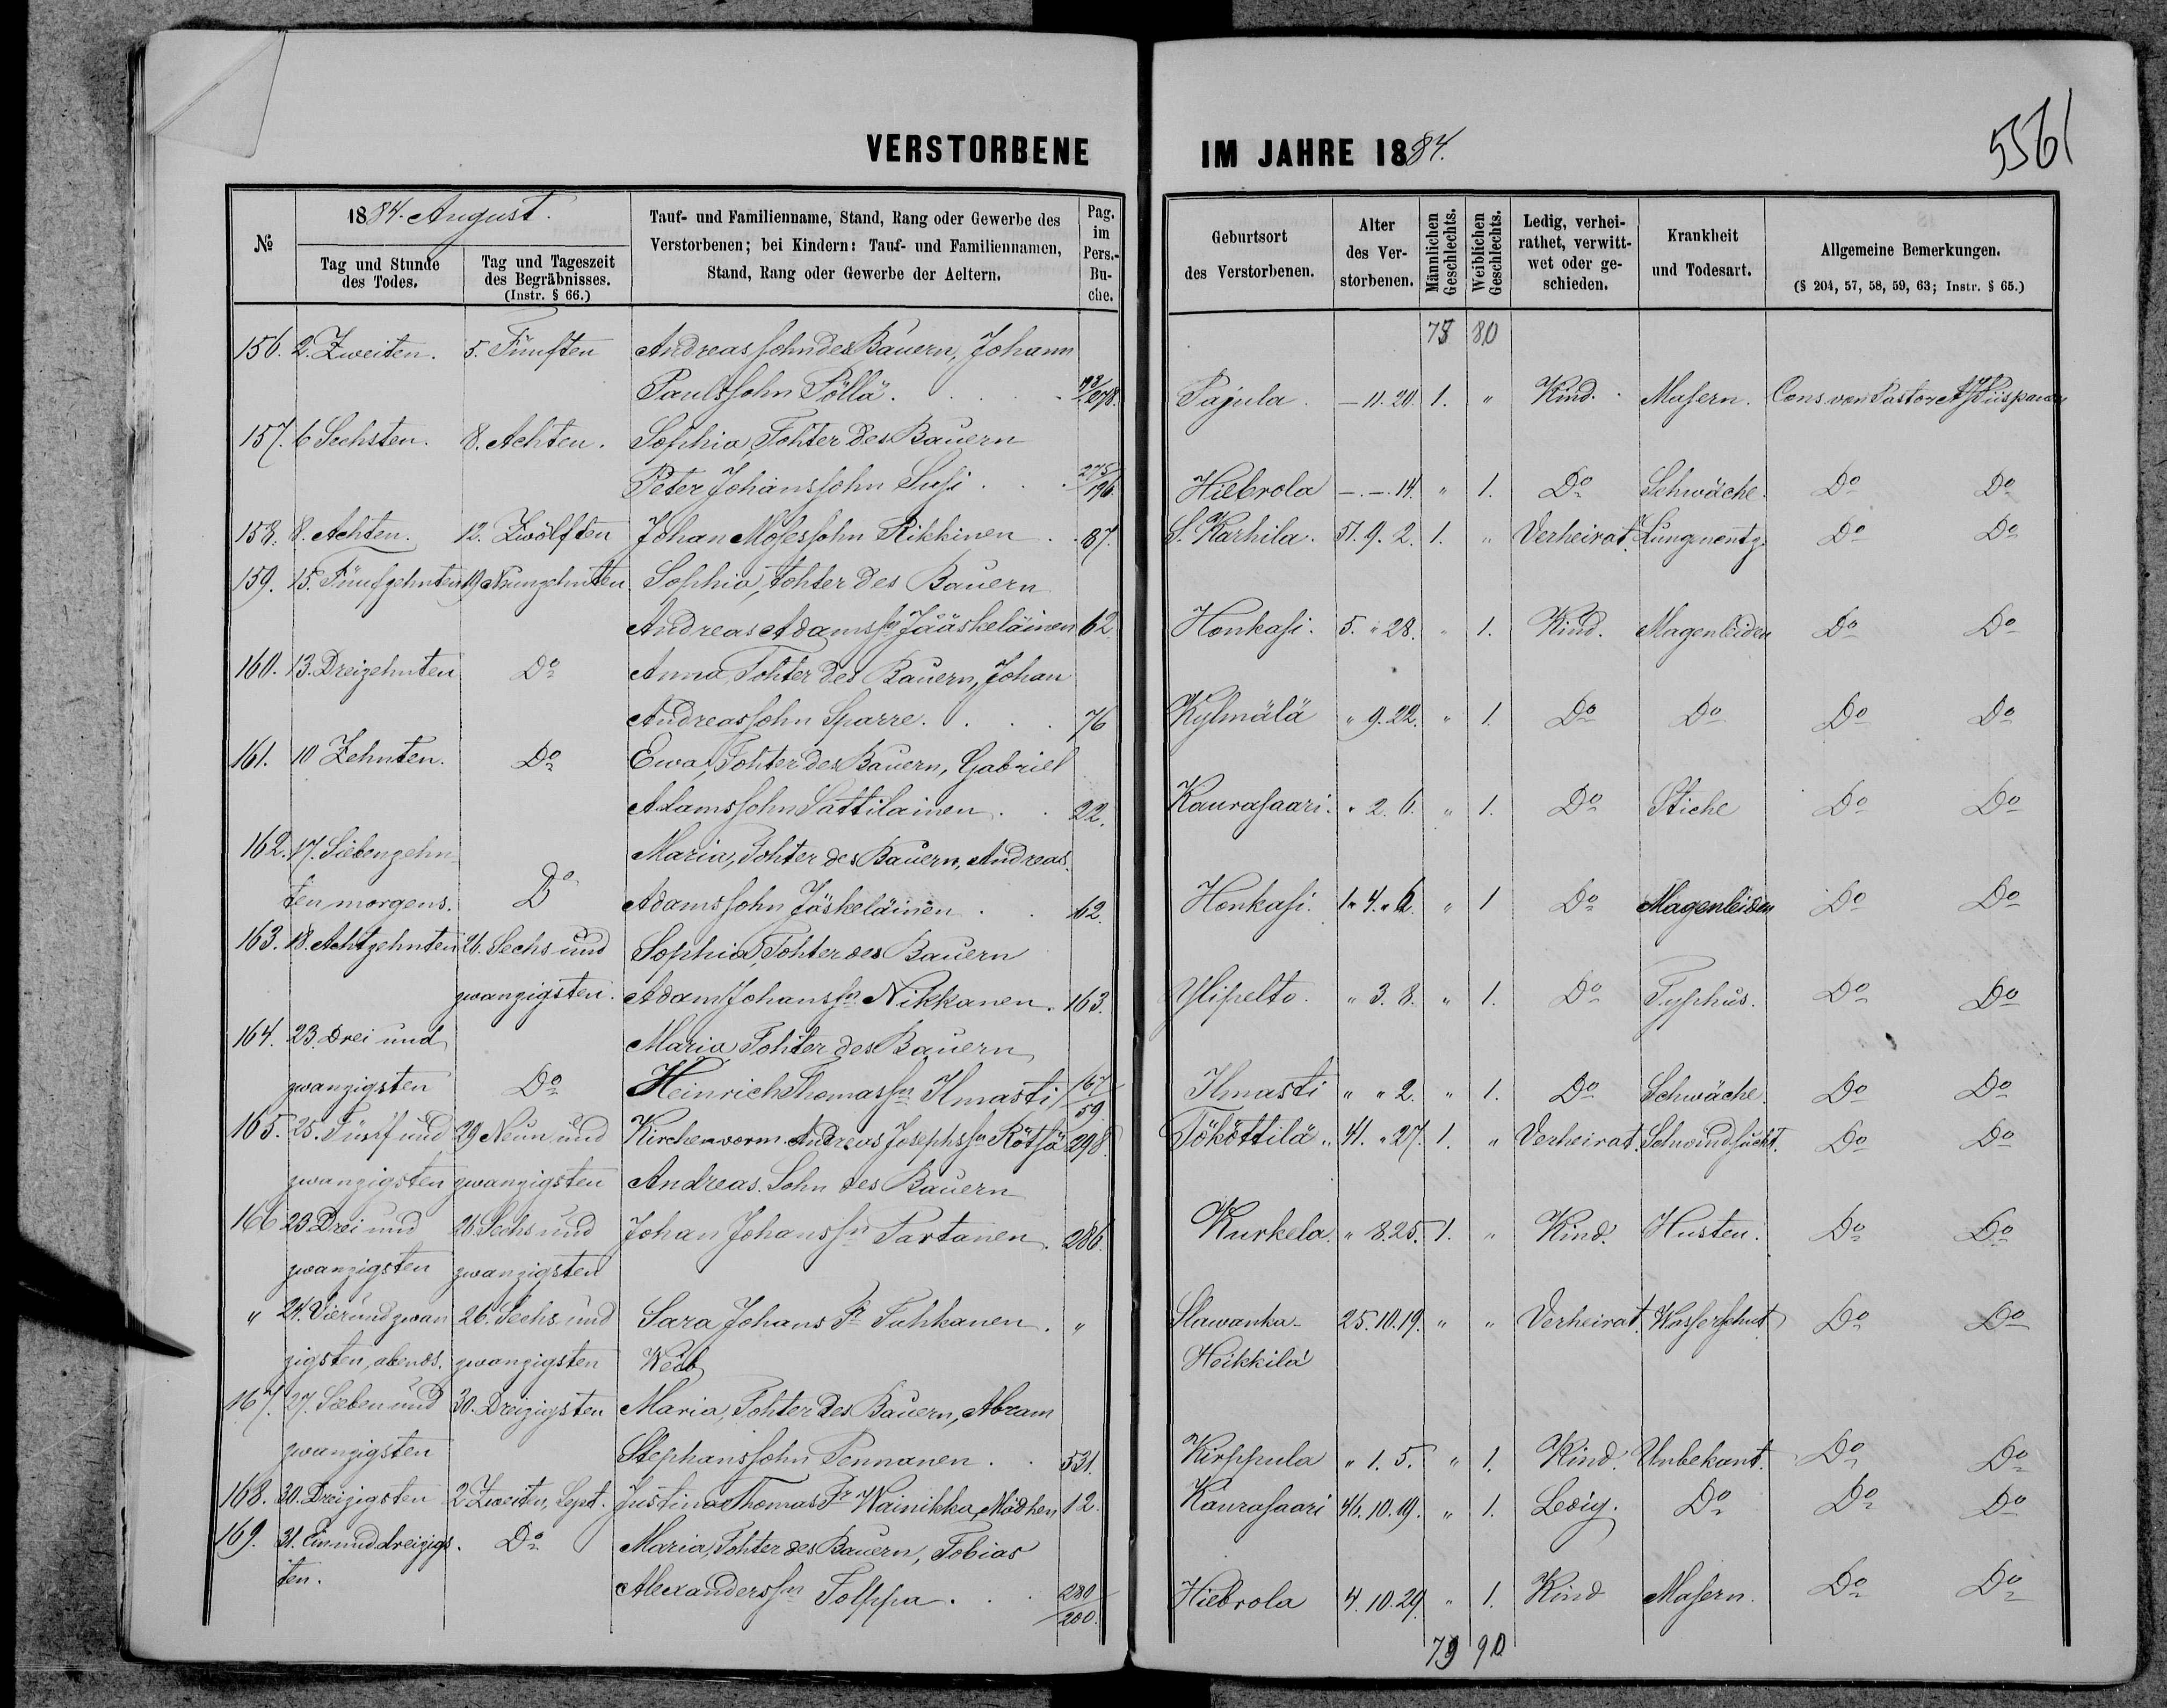 VERSTORBENE
1884. August.
№
Tag und Stunde des Todes.
Tag und Tageszeit des Begräbnisses. (Instr. § 66.)
Tauf- und Familienname, Stand, Rang oder Gewerbe des Verstorbenen; bei Kindern: Tauf- und Familiennamen, Stand, Rang oder Gewerbe der Aeltern.
Pag. im Pers.-Bu-che.
156. 2. Zweiten. 5. Fünften Andreas Sohn des Bauern, Johann
Paulssohn Pöllä.
157. 6 Sechsten. 8. Achten. Sophia, Tohter des Bauern
Peter Johanssohn Susi . . 275/196
158. 8. Achten. 12. Zwölften Johan Mosessohn Rikkinen . . 87.
159. 15. Fünfzehnten 19 Neunzehnten Sophia, tohter des Bauern
Andreas Adamssn Jääskeläinen 62.
160. 13. Dreizehnten Do Anna, Tohter des Bauern, Johan
Andreassohn Sparre. . . . 76
161. 10 Zehnten. Do Ewa, Tohter des Bauern, Gabriel
Adamssohn Sattilainen . . 22.
162. 17. Siebenzehn Maria, Tohter des Bauern, Andreas
ten morgens. Do Adamssohn Jäskeläinen . . 62.
163. 18. Achtzehnten 26. Sechs und Sophia, Tohter des Bauern
zwanzigsten. Adam Johanssn Nikkanen. 163.
164. 23. Drei und Maria Tohter des Bauern
zwanzigsten Do Heinrich Thomassn Ilmasti 167/59.
165. 25. Fünf und 29 Neun und Kirchenvorm. Andreas Josephssn Rötsä 298.
zwanzigsten zwanzigsten Andreas. Sohn des Bauern
166 23 Drei und 26 Sechs und Johan Johanssn Partanen. 286.
zwanzigsten zwanzigsten
" 24. Vierundzwan 26. Sechs und Sara Johans Tr Tuhkanen . "
zigsten, abends. zwanzigsten Weib
167. 27. Sieben und 30. Dreizigsten Maria, Tohter des Bauern, Abram
zwanzigsten Stephanssohn Pennanen . . 531.
168. 30. Dreizigsten 2 Zweiten, Sept. Justina Thomas Tr Wainikka, Mädhen 12.
169. 31. Einunddreizigs. Do Maria, Tohter des Bauern, Tobias
ten. Alexanderssn Tolppa . . . 280/200.
IM JAHRE 1884.
5561
Geburtsort des Verstorbenen.
Alter des Ver-storbenen.
Männlichen Geschlechts.
Weiblichen Geschlechts.
Ledig, verhei-rathet, verwitt-wet oder ge-schieden.
Krankheit und Todesart.
Allgemeine Bemerkungen. (§ 204, 57, 58, 59, 63; Instr. § 65.)
75 80
Pajula. – 11. 20. 1. " Kind. Masern. Cons. von Pastor
Hiebrola –.–. 14. " 1. Do Schwäche. Do Do
S. Karhila. 51. 9. 2. 1. " Verheirat. Lungenentz. Do Do
Honkasi. 5. " 28. " 1. Kind. Magenleiden Do Do
Kylmälä " 9. 22. " 1. Do Do Do Do
Kaurasaari. " 2. 6. " 1. Do Stiche Do Do
Honkasi. 1 " 4. " 6. " 1 Do Magenleiden Do Do
Ylipelto. " 3. 8. " 1. Do Typhus. Do Do
Ilmasti " " 2. " 1. Do Schwäche. Do Do
Tököttilä. 41. " 27. 1. " Verheirat. Schwindsucht. Do Do
Kurkela. " 8. 25. 1. " Kind. Husten. Do Do
Slawanka- 25. 10. 19. " " Verheirat. Do Do
Heikkilä
Kirppula " 1. 5. " 1. Kind. Unbekant. Do Do
Kaurasaari 46. 10. 19. " 1. Ledig. Do Do Do
Hiebrola 4. 10. 29. " 1. Kind Masern. Do Do
79 90